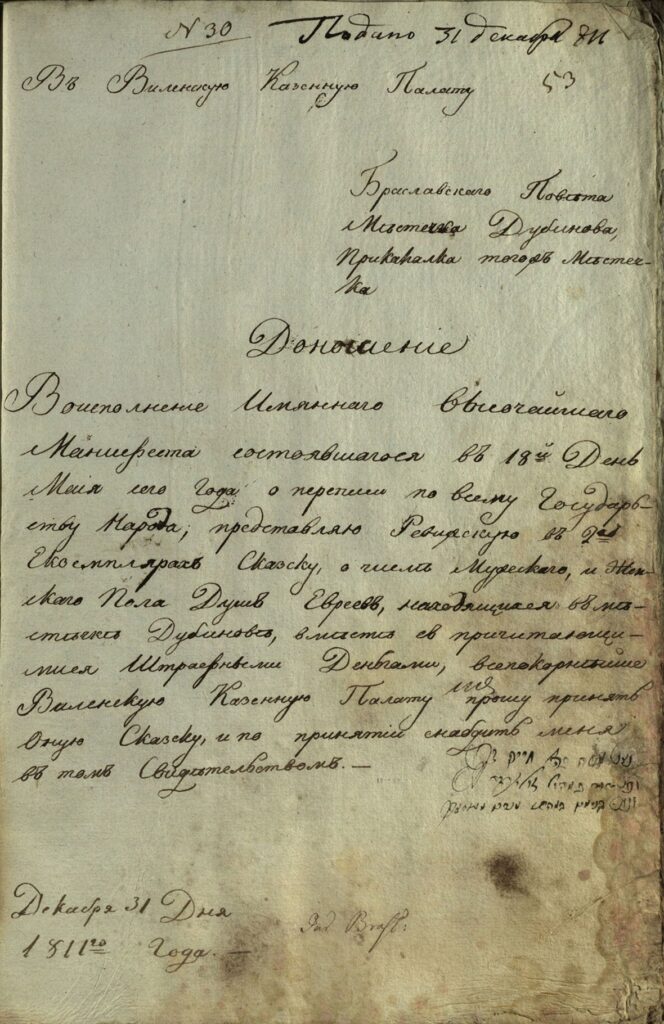 N 30
Подано 31 декабря 811
53
Въ Виленскую Казенную Палату
Браславскаго Повѣта
Мѣстечка Дубинова,
Прикагалка тогожъ Мѣстеч-
ка
Доношение
Воисполнение Имяннаго Высочайшаго
Манифеста состоявшагося въ 18й День
Маия сего Года о переписи по всему Государь-
ству Народа, представляю Ревизскую въ 2хъ
Екземплярахъ Сказку, о числѣ Мужеского, и Жен-
скаго Пола Душъ Евреевъ, находящихся въ мѣ-
стѣчкѣ Дубиновѣ, вместѣ съ причитающи-
мися Штрафными Деньгами, всепокорнѣйше
Виленскую Казенную Палату прошу принять
Оную Сказку, и по принятіи снабдить меня
въ томъ Свидѣтельствомъ. —
Декабря 31 Дня
1811го Года. —